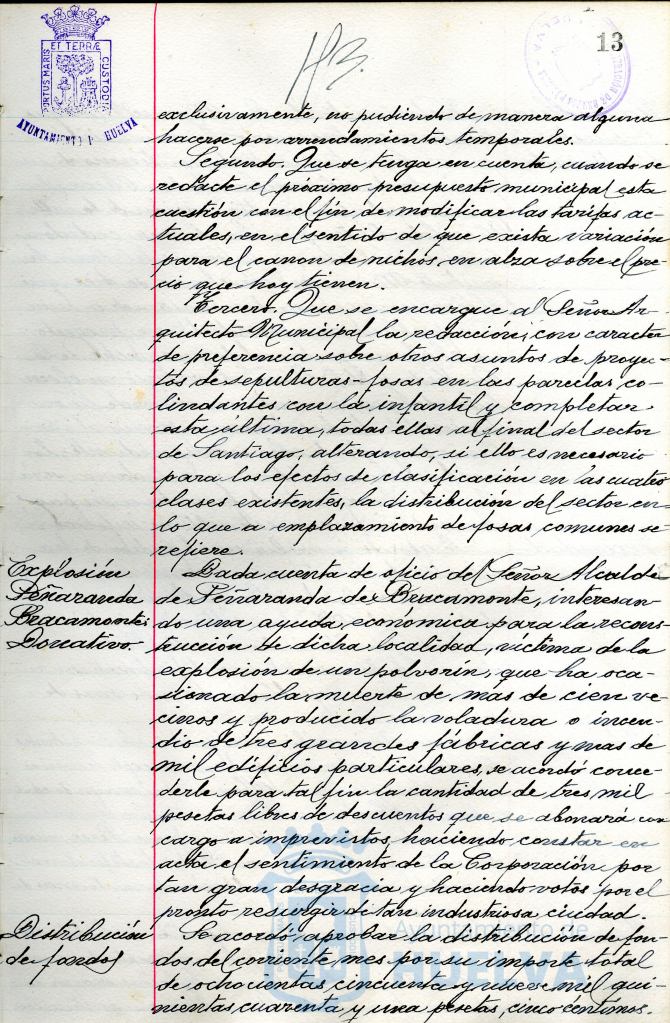 ET TERRÆ
PORTUS MARIS
CUSTODIA
AYUNTAMIENTO D HUELVA
13
113.
exclusivamente, no pudiendo de manera alguna
hacerse por arrendamientos temporales.
Segundo. Que se tenga en cuenta, cuando se
redacte el próximo presupuesto municipal esta
cuestión con el fin de modificar las tarifas ac-
tuales, en el sentido de que exista variación
para el canon de nichos, en alza sobre el pre-
cio que hoy tienen.
Tercero. Que se encargue al Señor Ar-
quitecto Municipal la redacción, con caracter
de preferencia sobre otros asuntos de proyec-
tos de sepulturas-fosas en las parcelas co-
lindantes con la infantil y completar
esta última, todas ellas al final del sector
de Santiago, alterando, si ello es necesario
para los efectos de clasificación en las cuatro
clases existentes, la distribución del sector en
lo que a emplazamiento de fosas comunes se
refiere.
Explosión
Peñaranda
Bracamonte:
Donativo.
Dada cuenta de oficio del Señor Alcalde
de Peñaranda de Bracamonte, interesan-
do una ayuda economica para la recons-
trucción de dicha localidad, víctima de la
explosión de un polvorín, que ha oca-
sionado la muerte de más de cien ve-
cinos y producido la voladura o incen-
dio de tres grandes fábricas y mas de
mil edificios particulares, se acordó conce-
derle para tal fin la cantidad de tres mil
pesetas libres de descuentos que se abonará con
cargo a imprevistos, haciendo constar en
acta el sentimiento de la Corporación por
tan gran desgracia y haciendo votos por el
pronto resurgir de tan industriosa ciudad.
Distribución
de fondos
Se acordó, aprobar la distribución de fon-
dos del corriente mes por su importe total
de ochocientas cincuenta y nueve mil qui-
nientas cuarenta y una pesetas, cinco céntimos.
Ayuntamiento de
HUELVA